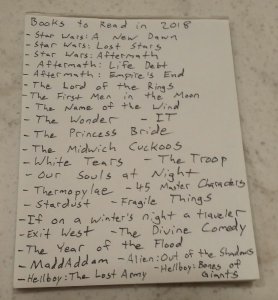 Books to Read in 2018
- Star Wars: A New Dawn
- Star Wars: Lost Stars
- Star Wars: Aftermath
- Aftermath: Life Debt
- Aftermath: Empire's End
- The Lord of the Rings
- The First Men in the Moon
- The Name of the Wind
- The Wonder - IT
- The Princess Bride
- The Midwich Cuckoos
- White Tears - The Troop
- Our Souls at Night
- Thermopylae - 45 Master Characters
- Stardust - Fragile Things
- If on a winter's night a traveler
- Exit West - The Divine Comedy
- The Year of the Flood
- MaddAddam - Alien: Out of the Shadows
- Hellboy: The Lost Army - Hellboy: Bones of Giants